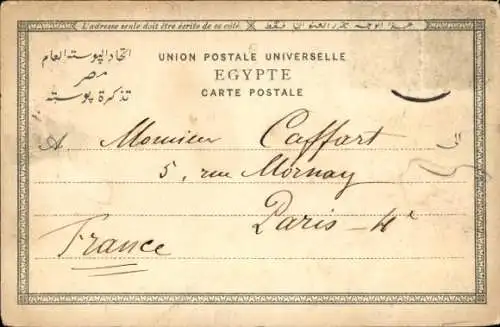 L'adresse seule doit être écrite de ce côté. هذا الوجه يحرر العنوان فقط
اتحاد البوستة العام
مصر
تذكرة بوسته
UNION POSTALE UNIVERSELLE
EGYPTE
CARTE POSTALE
A. Monsieur Caffart الى
5, rue Mornay
Paris - 4e
France